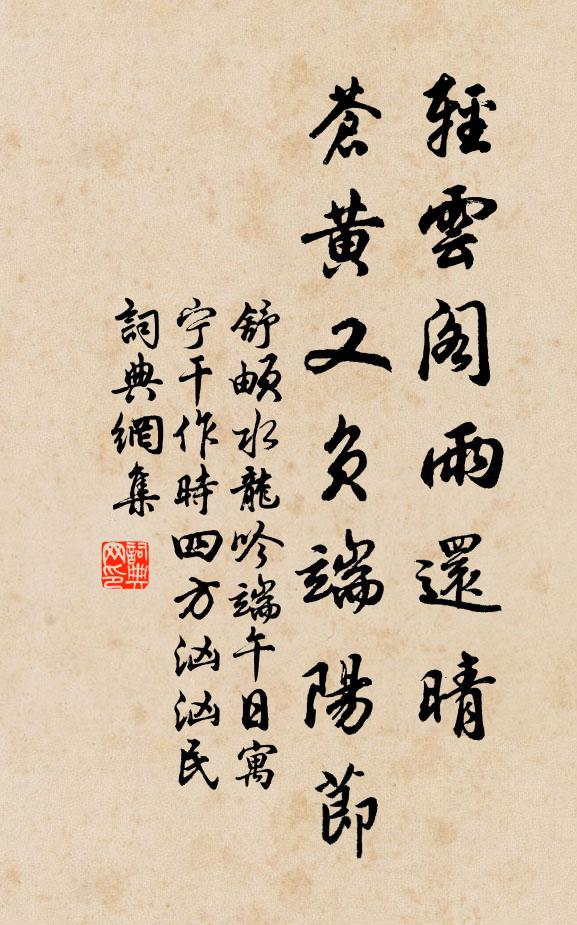 輕雲閣雨還晴
蒼黃又負端陽節
舒頔水龍吟端午日寓
宁干作時四方汹汹民
詞典網集
詞典网印